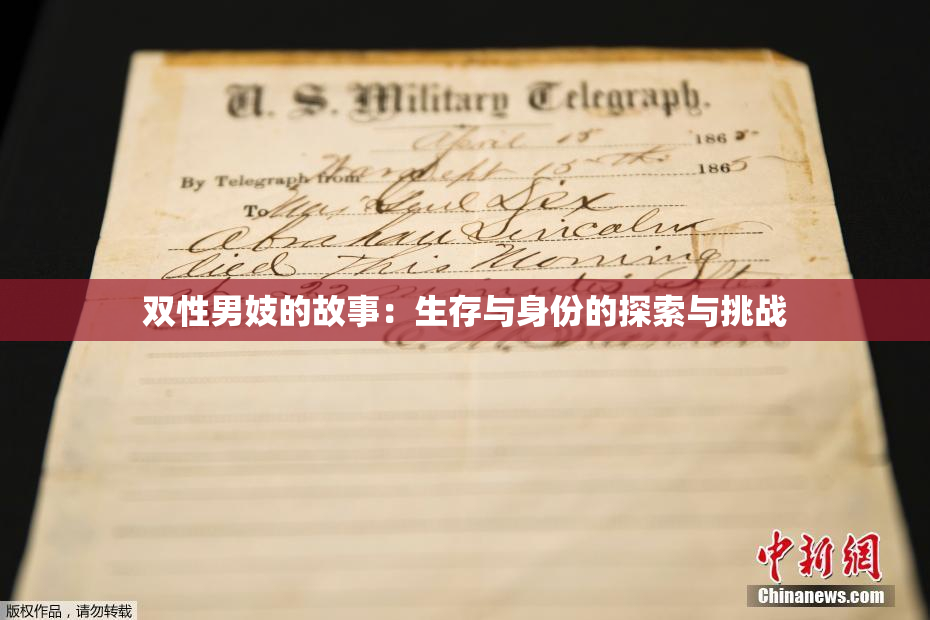 U. S. Military Telegraph.
April 15 1865
By Telegraph from War Dept 15th 1865
To Maj Genl Dix
Abraham Lincoln
died This Morning
at 22 minutes after
双性男妓的故事：生存与身份的探索与挑战
中新网
Chinanews.com
版权作品，请勿转载